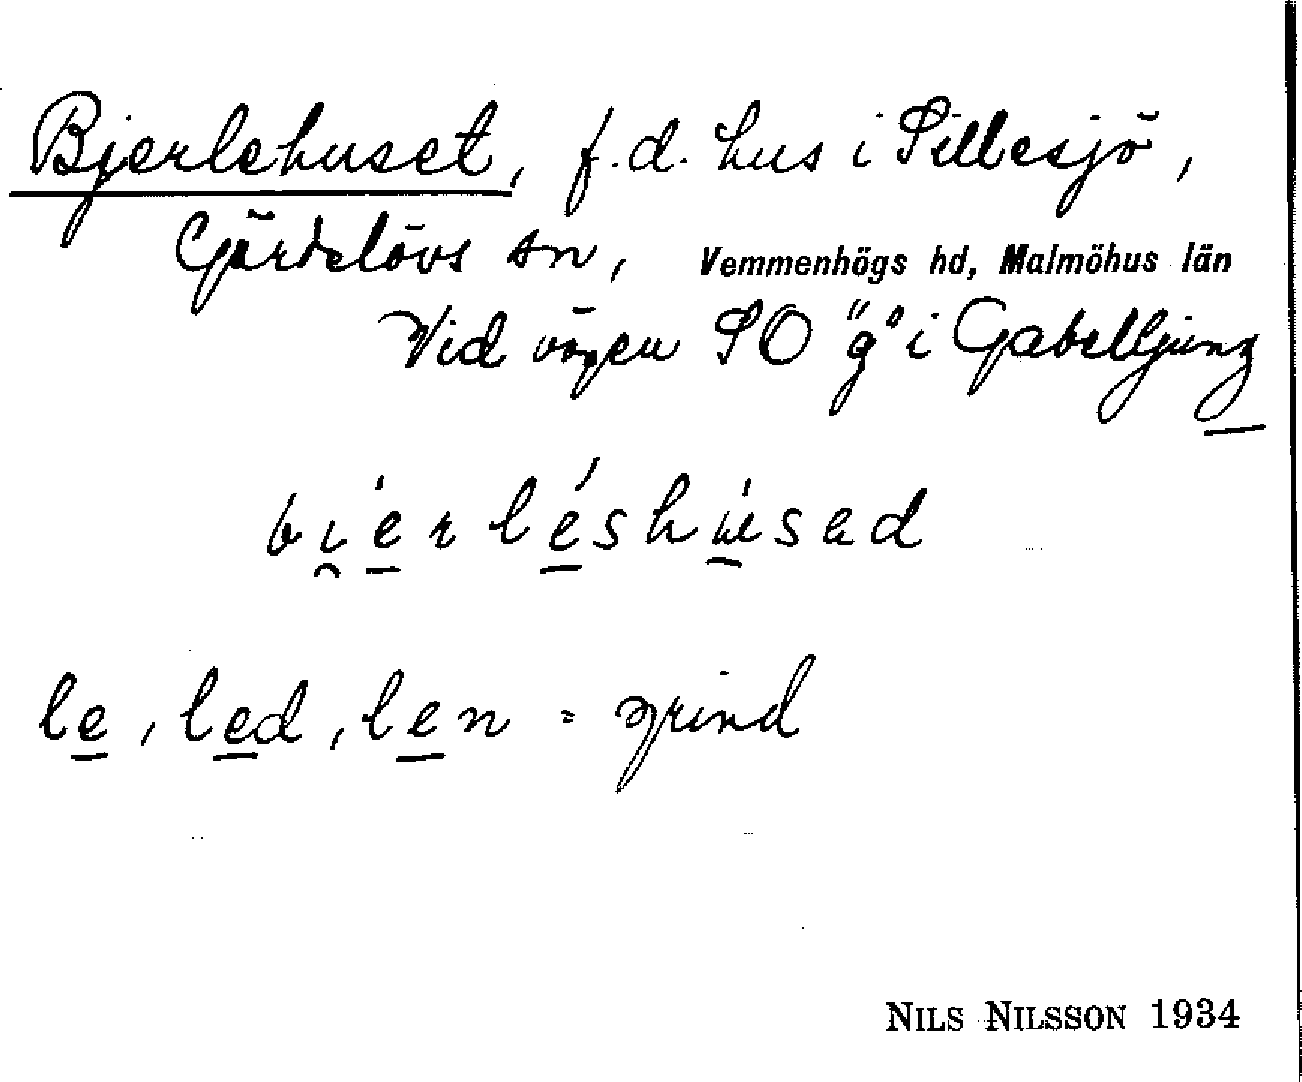 Bjerlehuset, f.d. hus i Sillesjö,
Gärdslövs sn, Vemmenhögs hd, Malmöhus län
Vid vägen SO "g" i Gabelljung
bi̯e̱rlé̱shu̱sad
le̱, le̱d, le̱n = grind
NILS NILSSON 1934